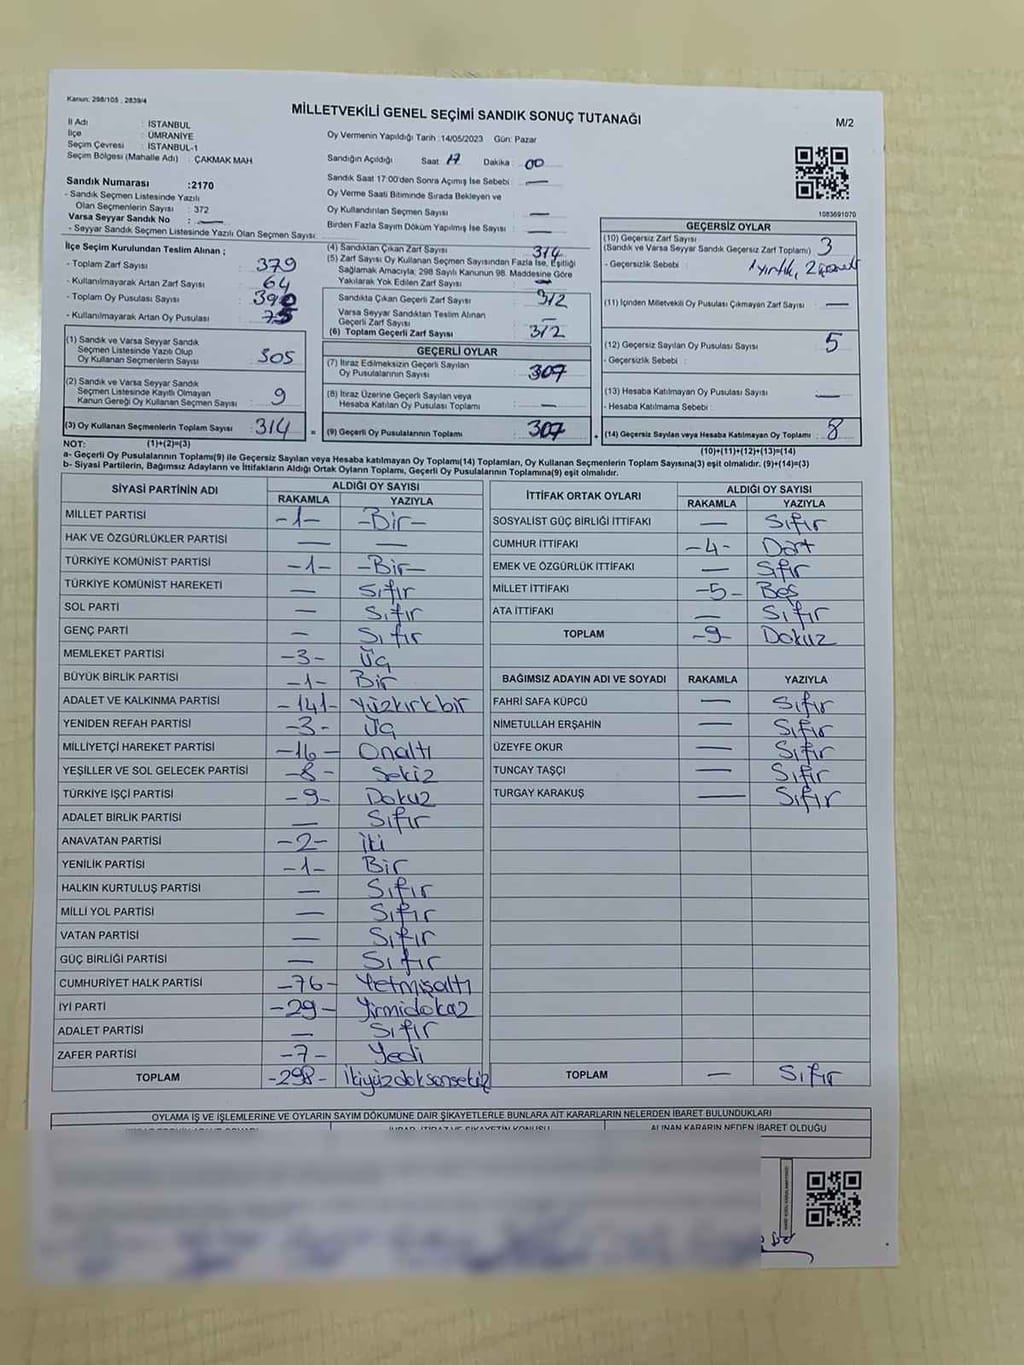 Kanun: 298/105 , 2839/4
MİLLETVEKİLİ GENEL SEÇİMİ SANDIK SONUÇ TUTANAĞI
M/2
İl Adı : İSTANBUL
İlçe : ÜMRANİYE
Seçim Çevresi : İSTANBUL-1
Seçim Bölgesi (Mahalle Adı) : ÇAKMAK MAH
Sandık Numarası :2170
- Sandık Seçmen Listesinde Yazılı
Olan Seçmenlerin Sayısı : 372
Varsa Seyyar Sandık No : —
- Seyyar Sandık Seçmen Listesinde Yazılı Olan Seçmen Sayısı:
Oy Vermenin Yapıldığı Tarih :14/05/2023 Gün: Pazar
Sandığın Açıldığı Saat : 17 Dakika : 00
Sandık Saat 17:00'den Sonra Açılmış İse Sebebi : —
Oy Verme Saati Bitiminde Sırada Bekleyen ve
Oy Kullandırılan Seçmen Sayısı : —
Birden Fazla Sayım Döküm Yapılmış İse Sayısı : —
1083691070
İlçe Seçim Kurulundan Teslim Alınan ;
- Toplam Zarf Sayısı : 379
- Kullanılmayarak Artan Zarf Sayısı : 64
- Toplam Oy Pusulası Sayısı : 390
- Kullanılmayarak Artan Oy Pusulası : 75
(1) Sandık ve Varsa Seyyar Sandık
Seçmen Listesinde Yazılı Olup
Oy Kullanan Seçmenlerin Sayısı : 305
(2) Sandık ve Varsa Seyyar Sandık
Seçmen Listesinde Kayıtlı Olmayan
Kanun Gereği Oy Kullanan Seçmen Sayısı : 9
(3) Oy Kullanan Seçmenlerin Toplam Sayısı : 314
(4) Sandıktan Çıkan Zarf Sayısı : 314
(5) Zarf Sayısı Oy Kullanan Seçmen Sayısından Fazla İse, Eşitliği
Sağlamak Amacıyla; 298 Sayılı Kanunun 98. Maddesine Göre
Yakılarak Yok Edilen Zarf Sayısı : —
Sandıkta Çıkan Geçerli Zarf Sayısı : 312
Varsa Seyyar Sandıktan Teslim Alınan
Geçerli Zarf Sayısı : —
(6) Toplam Geçerli Zarf Sayısı : 312
GEÇERLİ OYLAR
(7) İtiraz Edilmeksizin Geçerli Sayılan
Oy Pusulalarının Sayısı : 307
(8) İtiraz Üzerine Geçerli Sayılan veya
Hesaba Katılan Oy Pusulası Toplamı : —
= (9) Geçerli Oy Pusulalarının Toplamı : 307
GEÇERSİZ OYLAR
(10) Geçersiz Zarf Sayısı : 3
(Sandık ve Varsa Seyyar Sandık Geçersiz Zarf Toplamı)
- Geçersizlik Sebebi : 1 yırtık, 2
(11) İçinden Milletvekili Oy Pusulası Çıkmayan Zarf Sayısı : —
(12) Geçersiz Sayılan Oy Pusulası Sayısı : 5
- Geçersizlik Sebebi :
(13) Hesaba Katılmayan Oy Pusulası Sayısı : —
- Hesaba Katılmama Sebebi :
+ (14) Geçersiz Sayılan veya Hesaba Katılmayan Oy Pusulası Toplamı : 8
NOT: (1)+(2)=(3)
(10)+(11)+(12)+(13)=(14)
a- Geçerli Oy Pusulalarının Toplamı(9) ile Geçersiz Sayılan veya Hesaba katılmayan Oy Pusulası Toplamı(14) Toplamları, Oy Kullanan Seçmenlerin Toplam Sayısına(3) eşit olmalıdır. (9)+(14)=(3)
b- Siyasi Partilerin, Bağımsız Adayların ve İttifakların Aldığı Ortak Oyların Toplamı, Geçerli Oy Pusulalarının Toplamına(9) eşit olmalıdır.
SİYASİ PARTİNİN ADI ALDIĞI OY SAYISI
RAKAMLA YAZIYLA
MİLLET PARTİSİ -1- -Bir-
HAK VE ÖZGÜRLÜKLER PARTİSİ — —
TÜRKİYE KOMÜNİST PARTİSİ -1- -Bir-
TÜRKİYE KOMÜNİST HAREKETİ — Sıfır
SOL PARTİ — Sıfır
GENÇ PARTİ — Sıfır
MEMLEKET PARTİSİ -3- Üç
BÜYÜK BİRLİK PARTİSİ -1- Bir
ADALET VE KALKINMA PARTİSİ -141- Yüzkırkbir
YENİDEN REFAH PARTİSİ -3- Üç
MİLLİYETÇİ HAREKET PARTİSİ -16- Onaltı
YEŞİLLER VE SOL GELECEK PARTİSİ -8- Sekiz
TÜRKİYE İŞÇİ PARTİSİ -9- Dokuz
ADALET BİRLİK PARTİSİ — Sıfır
ANAVATAN PARTİSİ -2- İki
YENİLİK PARTİSİ -1- Bir
HALKIN KURTULUŞ PARTİSİ — Sıfır
MİLLİ YOL PARTİSİ — Sıfır
VATAN PARTİSİ — Sıfır
GÜÇ BİRLİĞİ PARTİSİ — Sıfır
CUMHURİYET HALK PARTİSİ -76- Yetmişaltı
İYİ PARTİ -29- Yirmidokuz
ADALET PARTİSİ — Sıfır
ZAFER PARTİSİ -7- Yedi
TOPLAM -298- İkiyüzdoksansekiz
İTTİFAK ORTAK OYLARI ALDIĞI OY SAYISI
RAKAMLA YAZIYLA
SOSYALİST GÜÇ BİRLİĞİ İTTİFAKI — Sıfır
CUMHUR İTTİFAKI -4- Dört
EMEK VE ÖZGÜRLÜK İTTİFAKI — Sıfır
MİLLET İTTİFAKI -5- Beş
ATA İTTİFAKI — Sıfır
TOPLAM -9- Dokuz
BAĞIMSIZ ADAYIN ADI VE SOYADI RAKAMLA YAZIYLA
FAHRİ SAFA KÜPCÜ — Sıfır
NİMETULLAH ERŞAHİN — Sıfır
ÜZEYFE OKUR — Sıfır
TUNCAY TAŞÇI — Sıfır
TURGAY KARAKUŞ — Sıfır
TOPLAM — Sıfır
OYLAMA İŞ VE İŞLEMLERİNE VE OYLARIN SAYIM DÖKÜMÜNE DAİR ŞİKAYETLERLE BUNLARA AİT KARARLARIN NELERDEN İBARET BULUNDUKLARI
ALINAN KARARIN NEDEN İBARET OLDUĞU